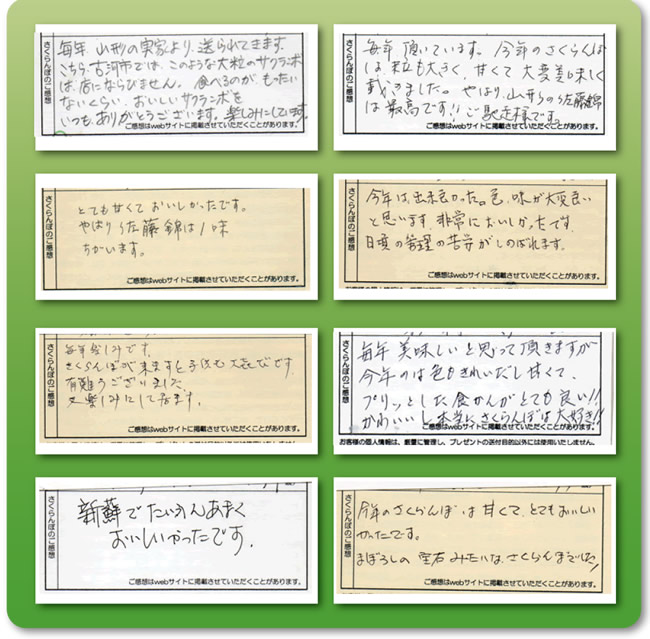 さくらんぼのご感想
毎年、山形の実家より、送られてきます。
こちら、古河市では、このような大粒のサクランボ
は、店にならびません。食べるのが、もったい
ないくらい、おいしいサクランボを
いつもありがとうございます。楽しみにしています。
ご感想はwebサイトに掲載させていただくことがあります。
さくらんぼのご感想
毎年頂いています。今年のさくらんぼ
は、粒も大きく、甘くて大変美味しく
戴きました。やはり、山形の佐藤錦
は最高です!!ご馳走様です。
ご感想はwebサイトに掲載させていただくことがあります。
さくらんぼのご感想
とても甘くておいしかったです。
やはり佐藤錦は1味
ちがいます。
ご感想はwebサイトに掲載させていただくことがあります。
さくらんぼのご感想
今年は、出来良かった。色、味が大変良い
と思います。非常においしかったです。
日頃の管理の苦労がしのばれます。
ご感想はwebサイトに掲載させていただくことがあります。
さくらんぼのご感想
毎年楽しみです。
さくらんぼが来ますと子供も大喜びです。
有難うございました。
又楽しみにして居ます。
ご感想はwebサイトに掲載させていただくことがあります。
さくらんぼのご感想
毎年美味しいと思って頂きますが
今年のは色もきれいだし甘くて、
プリッとした食かんがとても良い!!
かわいいし本当にさくらんぼは大好き!!
ご感想はwebサイトに掲載させていただくことがあります。
お客様の個人情報は、厳重に管理し、プレゼントの送付目的以外には使用いたしません。
さくらんぼのご感想
新鮮でたいへんあまく
おいしいかったです。
ご感想はwebサイトに掲載させていただくことがあります。
さくらんぼのご感想
今年のさくらんぼは甘くて、とてもおいしい
かったです。
まぼろしの宝石みたいな、さくらんぼでした!
ご感想はwebサイトに掲載させていただくことがあります。